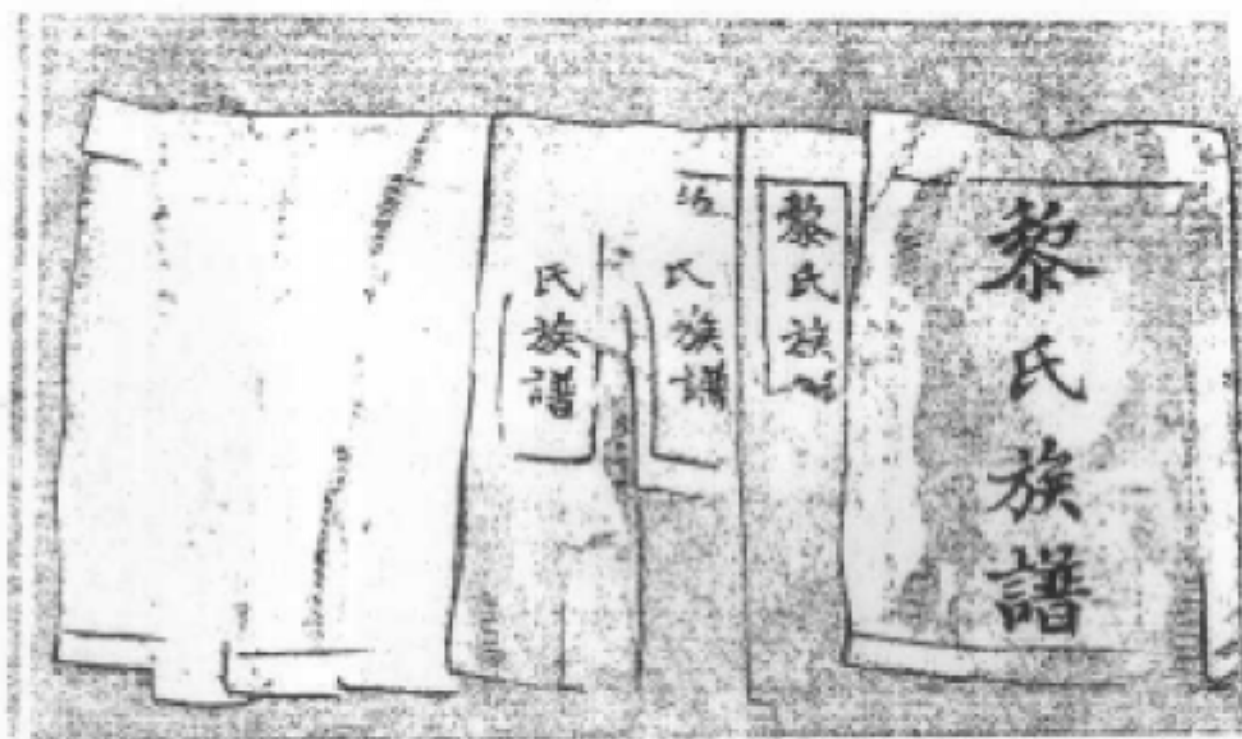 黎氏族譜
黎氏族
氏族譜
氏族譜